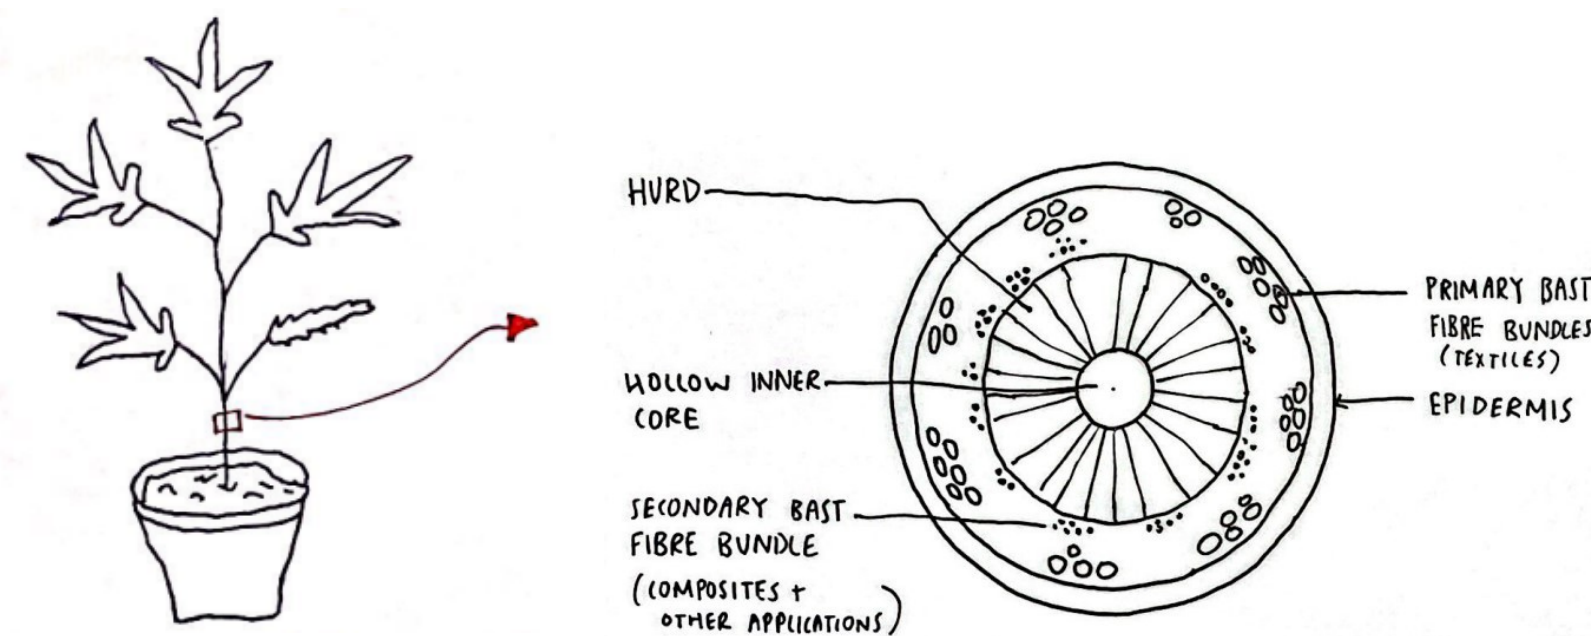 HURD
HOLLOW INNER
CORE
SECONDARY BAST
FIBRE BUNDLE
(COMPOSITES +
OTHER APPLICATIONS)
PRIMARY BAST
FIBRE BUNDLES
(TEXTILES)
EPIDERMIS